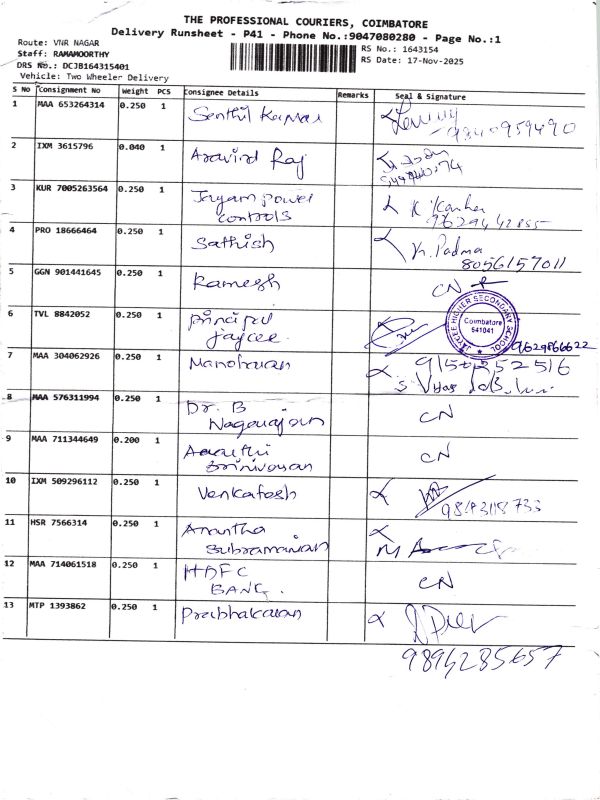 THE PROFESSIONAL COURIERS, COIMBATORE
Delivery Runsheet - P41 - Phone No.:9047080280 - Page No.:1
Route: VNR NAGAR
Staff: RAMAMOORTHY
DRS No.: DCJB164315401
Vehicle: Two Wheeler Delivery
RS No.: 1643154
RS Date: 17-Nov-2025
S No Consignment No Weight PCS Consignee Details Remarks Seal & Signature
1 MAA 653264314 0.250 1 Senthil Kumar
2 IXM 3615796 0.040 1 Aravind Raj
3 KUR 7005263564 0.250 1 Jayam power
controls
9629442855
4 PRO 18666464 0.250 1 Sathish K. Padma
8056157011
5 GGN 901441645 0.250 1 Ramesh CN
6 TVL 8842052 0.250 1 principal
jaycee
JAYCEE HIGHER SECONDARY SCHOOL
Coimbatore
641041
9629866622
7 MAA 304062926 0.250 1 Manoharan 9150252516
8 MAA 576311994 0.250 1 Dr. B
Nagarajan
CN
9 MAA 711344649 0.200 1 Aarthi
Srinivasan
CN
10 IXM 509296112 0.250 1 Venkatesh
11 HSR 7566314 0.250 1 Anantha
Subramanian
12 MAA 714061518 0.250 1 HDFC
BANG.
CN
13 MTP 1393862 0.250 1 Prabhakaran
9894285657